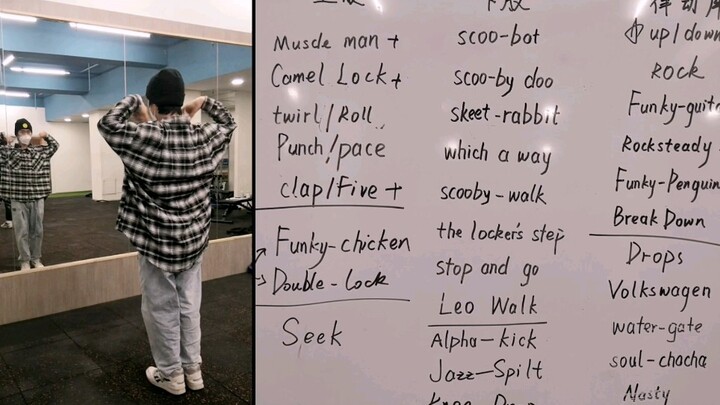 Muscle man +
Camel Lock +
twirl/Roll
Punch/pace
clap/Five +
Funky-chicken
Double-lock
Seek
scoo-bot
scoo-by doo
skeet-rabbit
which a way
scooby-walk
the locker's step
stop and go
Leo Walk
Alpha-kick
Jazz-Spilt
律动库
up/down
Rock
Funky-guit
Rocksteady
Funky-Penguin
BreakDown
Drops
Volkswagen
water-gate
soul-chacha
Nasty